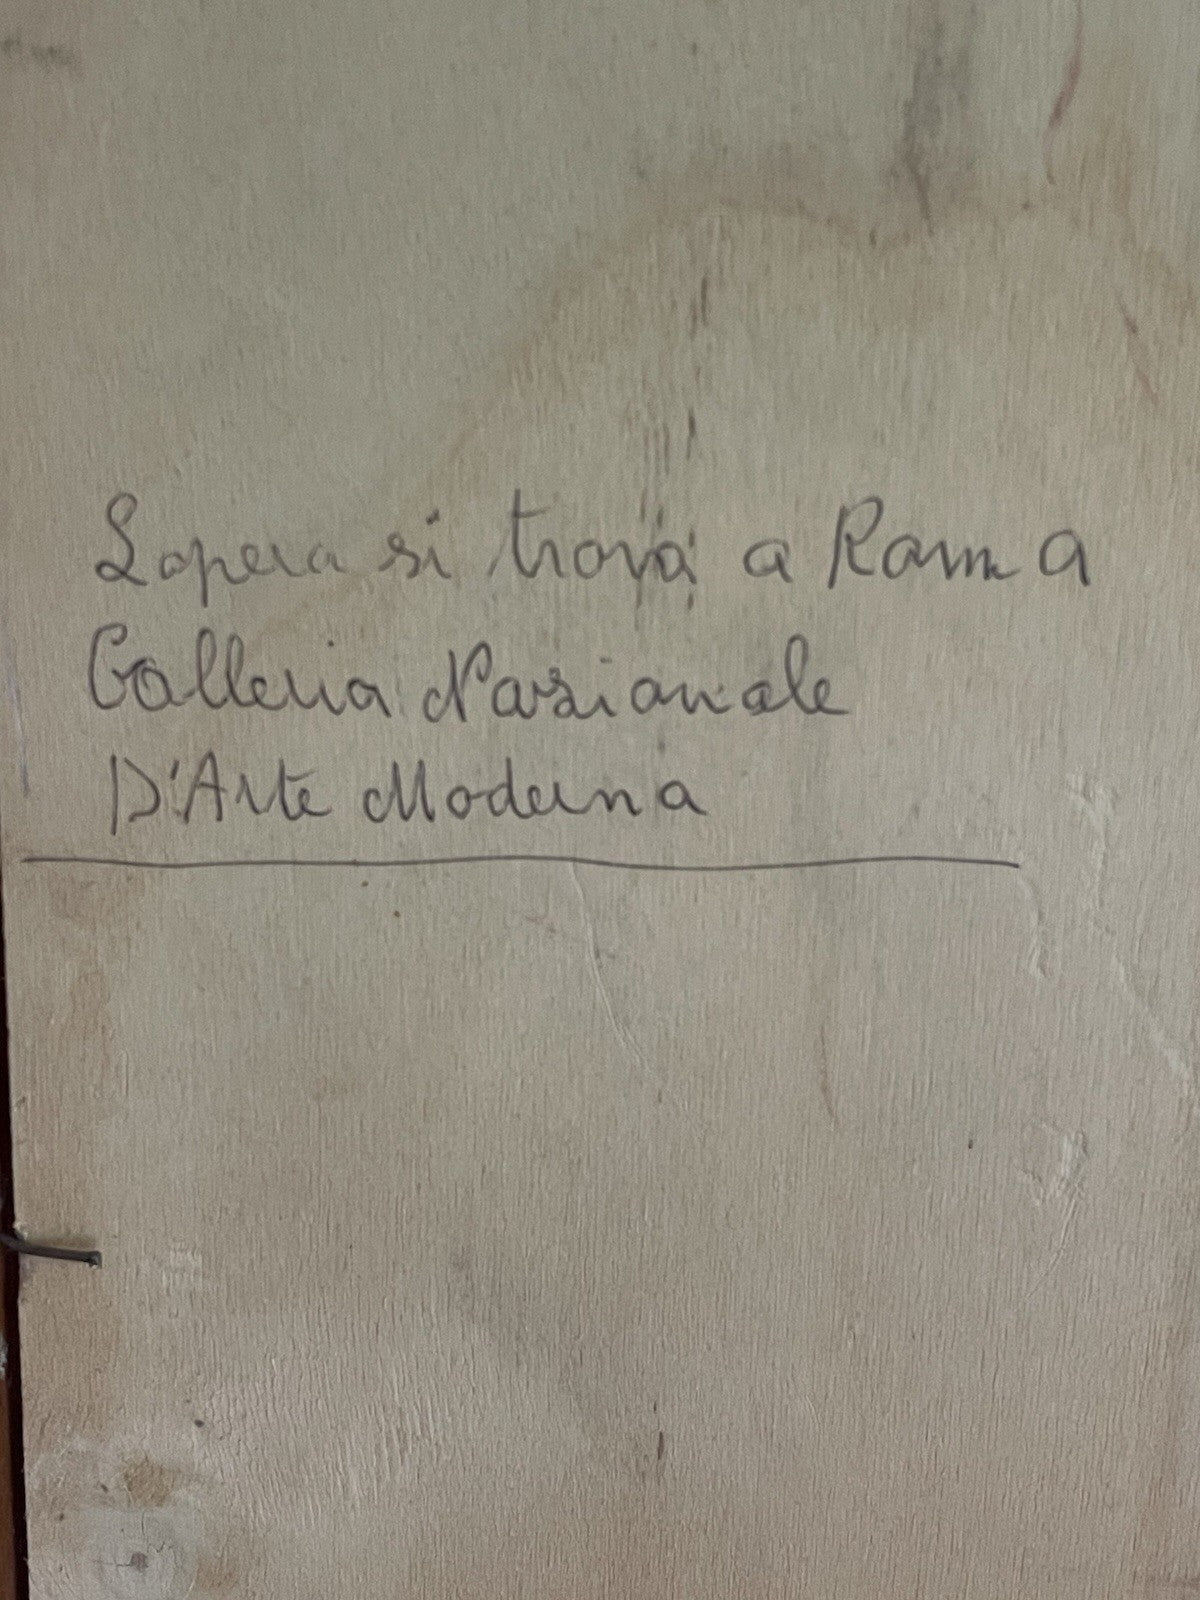 Lopera si trova a Roma
Galleria Nazionale
D'Arte Moderna